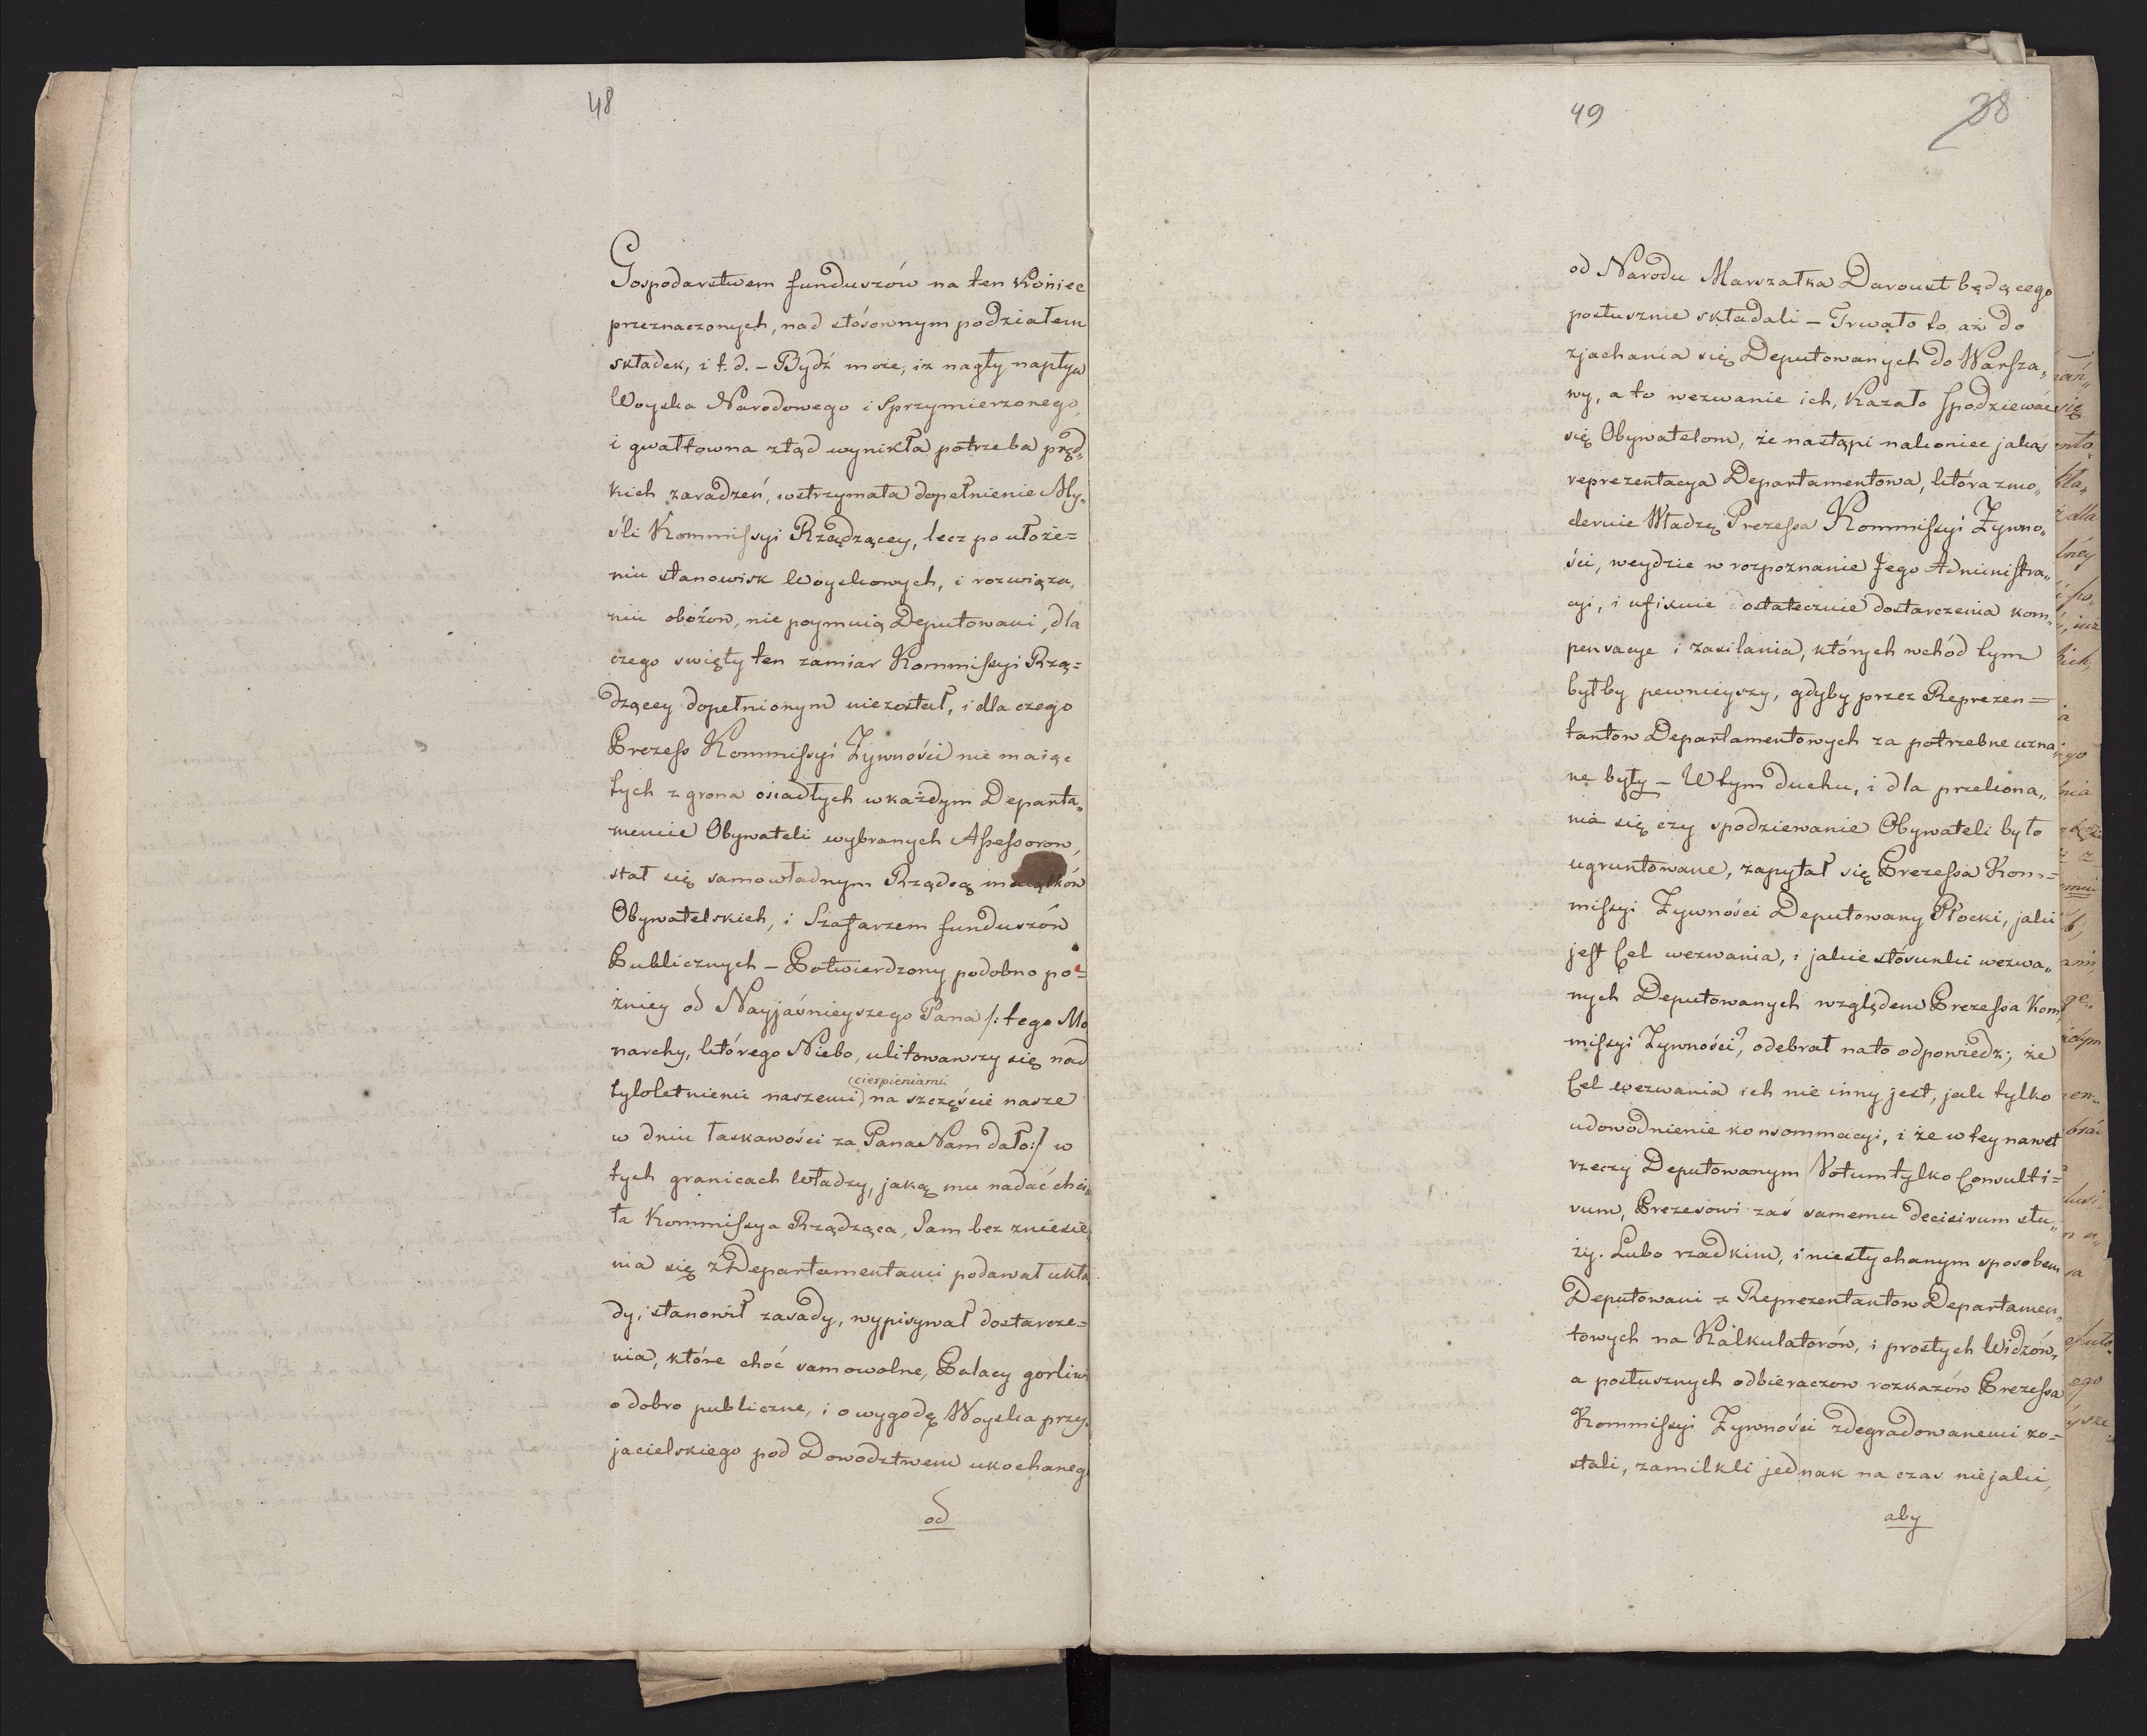 48
Gospodarstwem funduszów na ten koniec
przeznaczonych, nad stósownym podziałem
składek, i t. d. – Bydź może, iż nagły napływ
Woyska Narodowego i Sprzymierzonego,
i gwałtowna ztąd wynikła potrzeba pręd„
kich zaradzeń, wstrzymała dopełnienie My„
śli Kommissyi Rządzącey, lecz po ułoże=
niu stanowisk Woyskowych, i rozwiąza„
niu obozow, nie poymuią Deputowani, dla
czego swięty ten zamiar Kommissyi Rzą=
dzącey dopełnionym nie został, i dla czego
Prezess Kommissyi Zywności nie maiąc
tych z grona osiadłych w każdym Departa„
mencie Obywateli wybranych Assessorow,
stał się samowładnym Rządcą maiątków
Obywatelskich, i Szafarzem funduszów
Publicznych – Potwierdzony podobno po=
żniey od Nayjaśnieyszego Pana /: tego Mo
narchy, którego Niebo, ulitowawszy się nad
cierpieniami
tyloletniemi naszemi na szczęście nasze
w dniu łaskawości za Pana Nam dało :/ w
tych granicach Władzy, jaką mu nadać chcia
ła Kommissya Rządząca, Sam bez zniesie„
nia się z Departamentami podawał ukła
dy, stanowił zasady, wypisywał dostarcze=
nia, które choć samowolne, Polacy gorliwi
o dobro publiczne, i o wygodę Woyska przy„
jacielskiego pod Dowodztwem ukochaneg
od
49
28
od Narodu Marszałka Davoust będącego
posłusznie składali – Trwało to aż do
zjachania się Deputowanych do Warsza„
wy, a to wezwanie ich, kazało spodziewać
się Obywatelom, że nastąpi nakoniec jaka
reprezentacya Departamentowa, która zmo„
deruie Władzę Prezessa Kommissyi Zywno„
ści, weydzie w rozpoznanie Jego Administra„
cyi, i ufixuie ostatecznie dostarczenia kom„
pensacye i zasilania, których wchód tym
byłby pewnieyszy, gdyby przez Reprezen=
tantow Departamentowych za potrzebne uzna
ne były – W tym duchu, i dla przekona„
nia się czy spodziewanie Obywateli było
ugruntowane, zapytał się Prezessa Kom=
missyi Zywności Deputowany Płocki, jaki
jest Cel wezwania, i jakie stósunki wezwa„
nych Deputowanych względem Prezessa Kom„
missyi Zywności?, odebrał na to odpowiedz; że
Cel wezwania ich nie inny jest, jak tylko
udowodnienie konsommacyi, i że w tey nawet
rzeczy Deputowanym Votum tylko Consulti=
vum, Prezesowi zaś samemu decisivum słu„
ży. Lubo rzadkim, i niesłychanym sposobem
Deputowani z Reprezentantow Departamen„
towych na Kalkulatorów, i prostych Widzów,
a posłusznych odbieraczow rozkazów Prezessa
Kommissyi Zywności zdegradowanemi zo=
stali, zamilkli jednak na czas niejaki,
aby